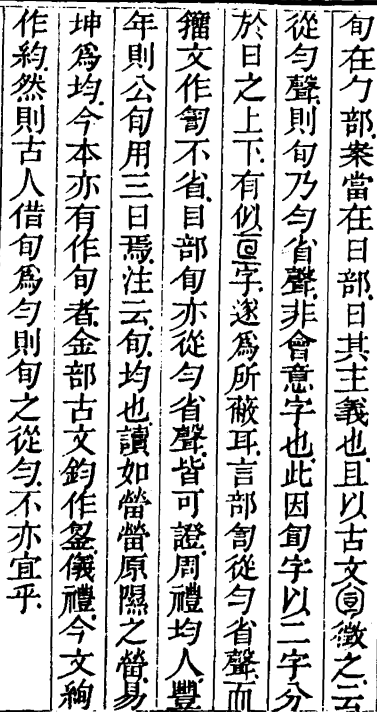 旬在勹部案當在日部日其主義也且以古文㫬徵之云
從勻聲則旬乃勻省聲非會意字也此因旬字以二字分
於日之上下有似亘字遂爲所蔽耳言部訇從勻省聲而
籀文作訇不省目部旬亦從勻省聲皆可證周禮均人豐
年則公旬用三日焉注云旬均也讀如㽦㽦原隰之㽦易
坤爲均今本亦有作旬者金部古文鈞作𨥿儀禮今文絢
作約然則古人借旬爲勻則旬之從勻不亦宜乎